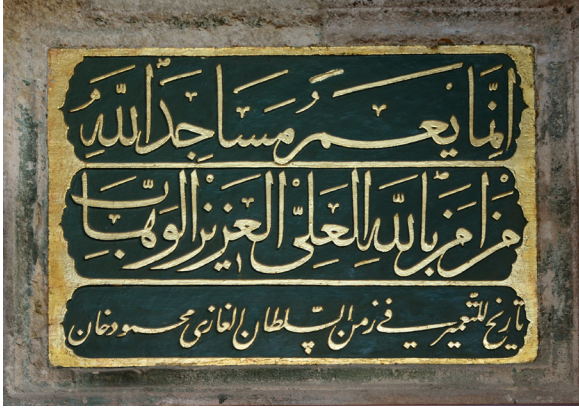 إنما يعمر مساجد الله
من آمن بالله العلي العزيز الوهاب
تاريخ للتعمير في زمن السلطان الغازي محمود خان